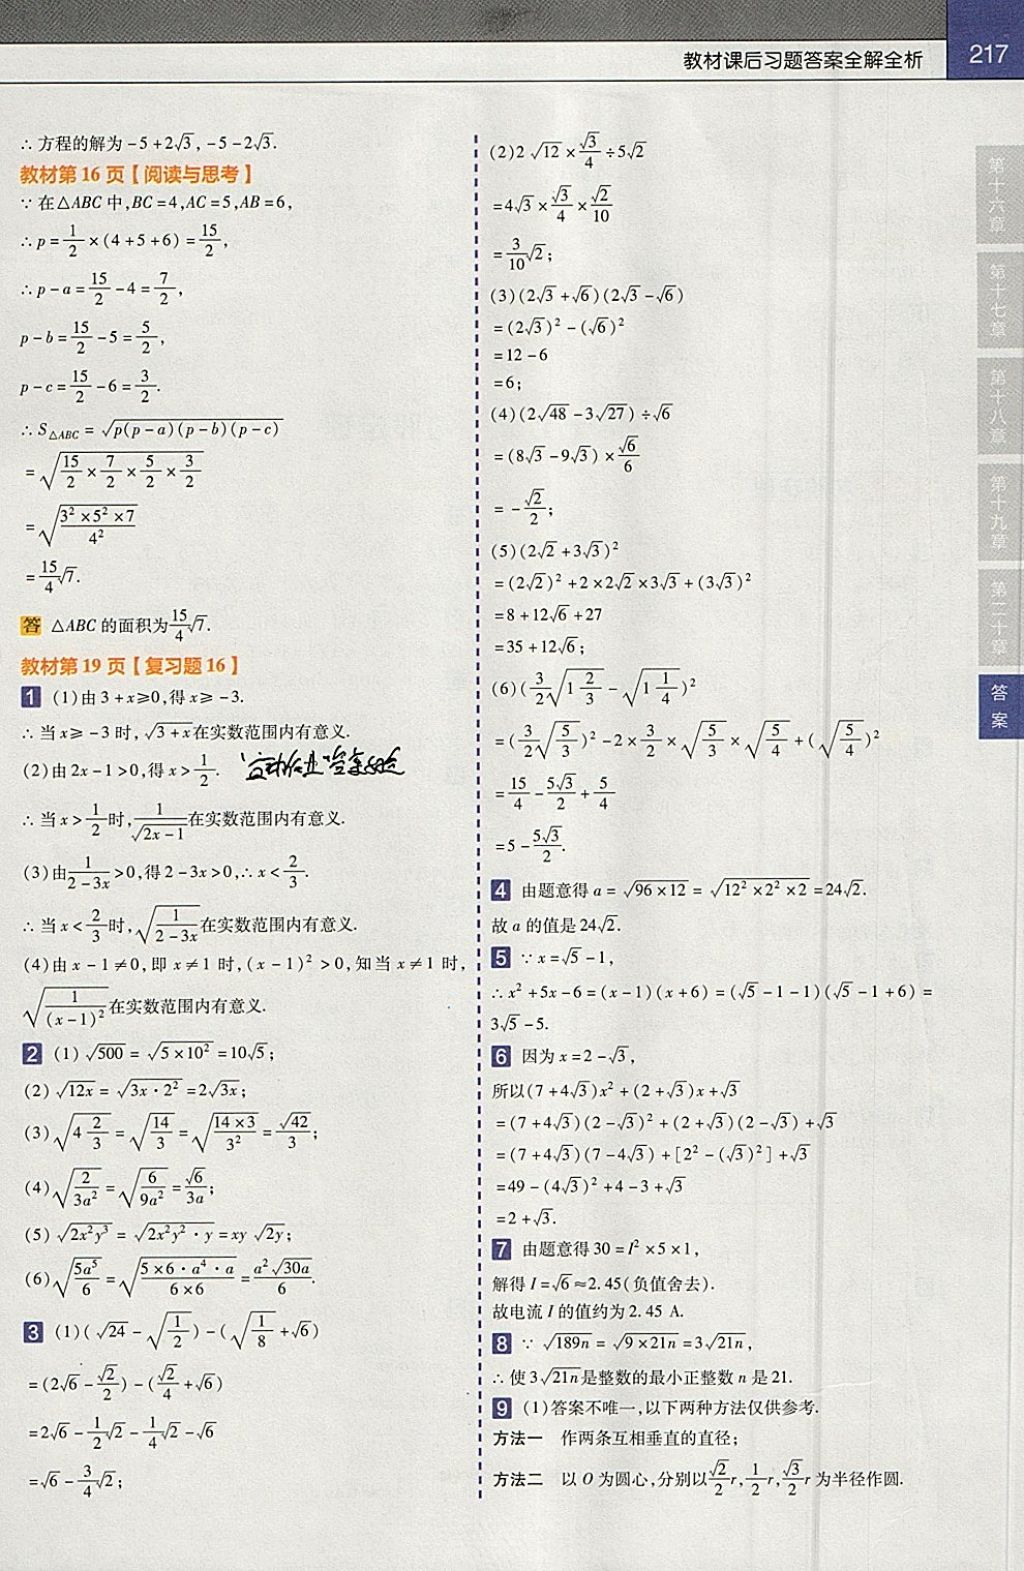 教材课后习题答案全解全析
217
∴方程的解为-5+2√3,-5-2√3.
教材第16页【阅读与思考】
∵在△ABC中,BC=4,AC=5,AB=6,
∴p=1/2×(4+5+6)=15/2,
∴p-a=15/2-4=7/2,
p-b=15/2-5=5/2,
p-c=15/2-6=3/2.
∴S△ABC=√(p(p-a)(p-b)(p-c))
=√(15/2×7/2×5/2×3/2)
=√((3²×5²×7)/4²)
=15/4√7.
答 △ABC的面积为15/4√7.
教材第19页【复习题16】
1 (1)由3+x≥0,得x≥-3.
∴当x≥-3时,√(3+x)在实数范围内有意义.
(2)由2x-1>0,得x>1/2.
∴当x>1/2时,1/√(2x-1)在实数范围内有意义.
(3)由1/(2-3x)>0,得2-3x>0,∴x<2/3.
∴当x<2/3时,√(1/(2-3x))在实数范围内有意义.
(4)由x-1≠0,即x≠1时,(x-1)²>0,知当x≠1时,
√(1/(x-1)²)在实数范围内有意义.
2 (1)√500=√(5×10²)=10√5;
(2)√(12x)=√(3x·2²)=2√(3x);
(3)√(4 2/3)=√(14/3)=√((14×3)/3²)=√42/3;
(4)√(2/(3a²))=√(6/(9a²))=√6/(3a);
(5)√(2x²y³)=√(2x²y²·y)=xy√(2y);
(6)√(5a⁵/6)=√((5×6·a⁴·a)/(6×6))=a²√(30a)/6.
3 (1)(√24-√(1/2))-(√(1/8)+√6)
=(2√6-√2/2)-(√2/4+√6)
=2√6-1/2√2-1/4√2-√6
=√6-3/4√2;
(2)2√12×√3/4÷5√2
=4√3×√3/4×√2/10
=3/10√2;
(3)(2√3+√6)(2√3-√6)
=(2√3)²-(√6)²
=12-6
=6;
(4)(2√48-3√27)÷√6
=(8√3-9√3)×√6/6
=-√2/2;
(5)(2√2+3√3)²
=(2√2)²+2×2√2×3√3+(3√3)²
=8+12√6+27
=35+12√6;
(6)(3/2√(1 2/3)-√(1 1/4))²
=(3/2√(5/3))²-2×3/2×√(5/3)×√(5/4)+(√(5/4))²
=15/4-5√3/2+5/4
=5-5√3/2.
4 由题意得a=√(96×12)=√(12²×2²×2)=24√2.
故a的值是24√2.
5 ∵x=√5-1,
∴x²+5x-6=(x-1)(x+6)=(√5-1-1)(√5-1+6)=
3√5-5.
6 因为x=2-√3,
所以(7+4√3)x²+(2+√3)x+√3
=(7+4√3)(2-√3)²+(2+√3)(2-√3)+√3
=(7+4√3)(7-4√3)+[2²-(√3)²]+√3
=49-(4√3)²+4-3+√3
=2+√3.
7 由题意得30=I²×5×1,
解得I=√6≈2.45(负值舍去).
故电流I的值约为2.45 A.
8 ∵√(189n)=√(9×21n)=3√(21n),
∴使3√(21n)是整数的最小正整数n是21.
9 (1)答案不唯一,以下两种方法仅供参考.
方法一 作两条互相垂直的直径;
方法二 以O为圆心,分别以√2/2r,1/2r,√3/2r为半径作圆.
第十六章
第十七章
第十八章
第十九章
第二十章
答案